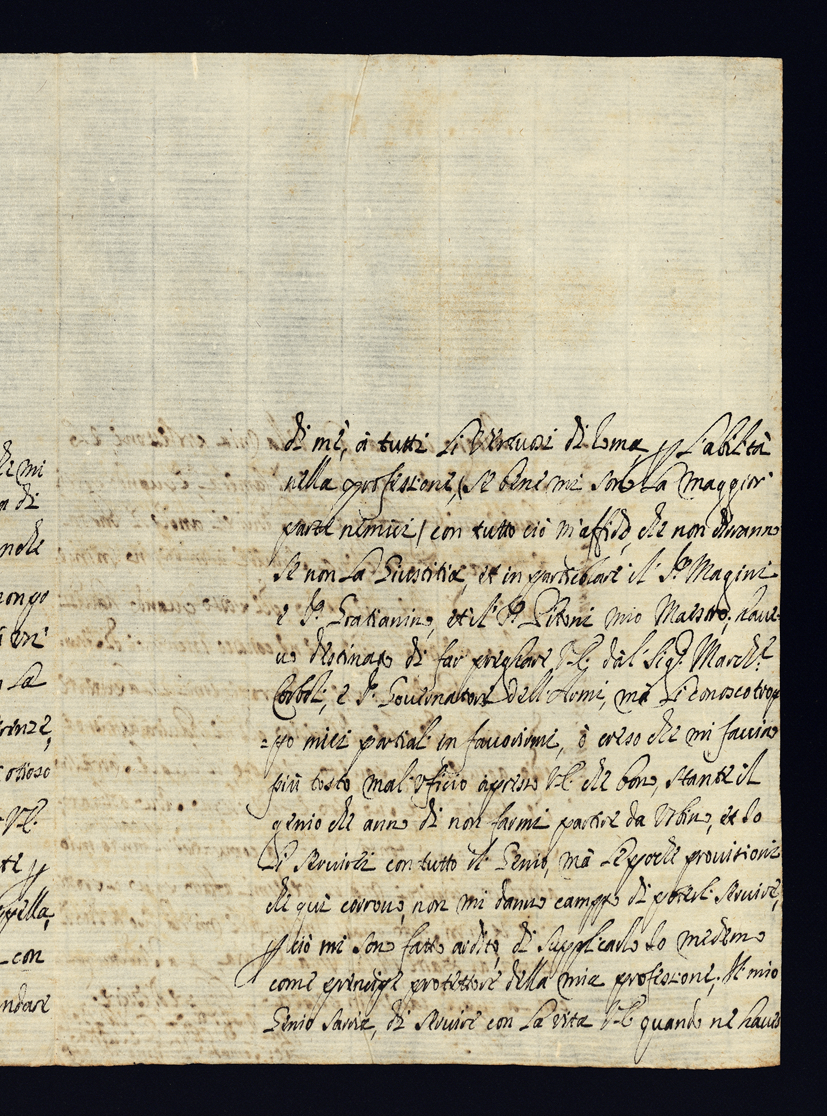 di mi
di
nche
La
otioso
V.A.
con
di mè, à tutti li Virtuosi di Roma p l'abilità
nella professione, (se bene mi sono la maggior
parte nemici) con tutto ciò m'affido che non diranno
se non la Giustitia, et in particolare il Sr Magini
e Sr Gratianino, et il Sr Pitoni mio Maestro, haue-
uo destinato di far pregare V.A. dal Sigr March.e
Corboli, e Sr Gouernatore dell'Armi, mà li conosco trop
=po miei partiali in fauorirmi, ò creso che mi faccino
più tosto mal'Vficio apresso V.A. che bono, stante il
genio che anno di non farmi partire da Vrbino, et Io
di seruirli con tutto il Genio, mà le poche prouisioni
che quì corrono, non mi danno campo di poterli seruire,
p ciò mi son fatto ardito di supplicarlo Io medemo
come principe protettore della mia professione. Il mio
Genio saria, di seruire con la vita V.A. quando ne hauesse